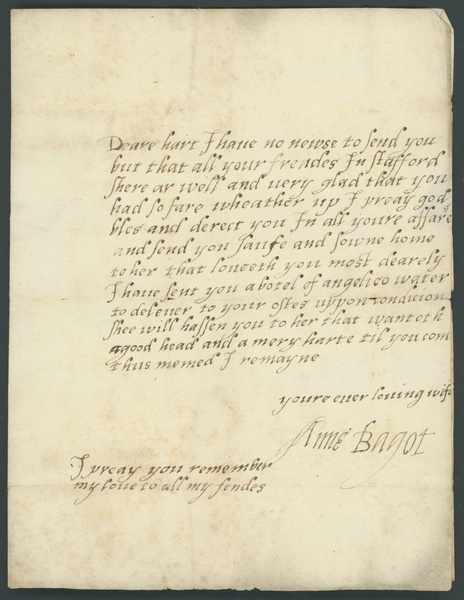 Deare hart I haue no newse to send you
but that all your frendes In stafford
shere ar well and uery glad that you
had so fare wheather up I preay god
bles and derect you In all youre affare
and send you saufe and sowne home
to her that loueeth you most dearely
I haue sent you abotel of angelico water
to deleuer to your ostes uppon condicion
shee will hassen you to her that wanteth
agood head and a mery harte til you com
thus memed I remayne
youre euer louing wife
Anne Bagot
I preay you remember
my loue to all my fendes